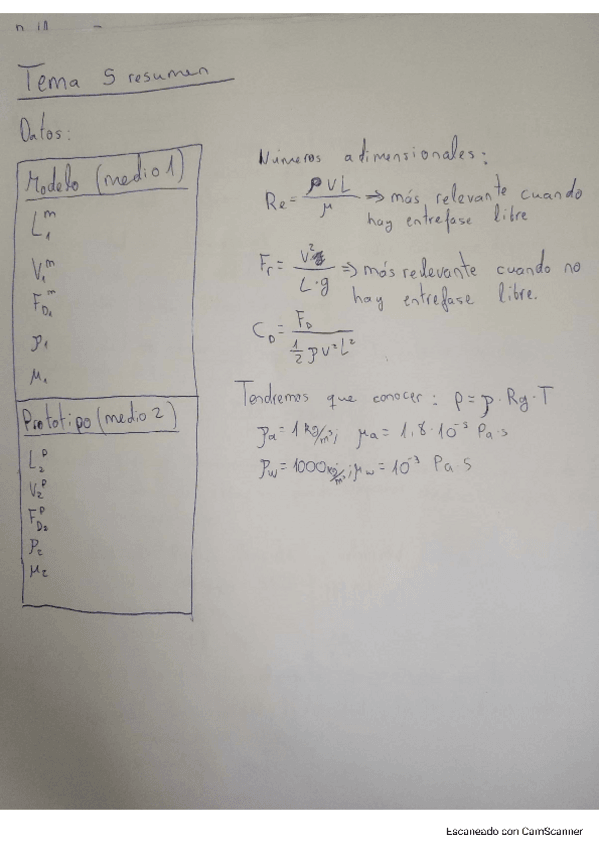 Tema 5 resumen
Datos:
Modelo (medio 1)
L₁ᵐ
V₁ᵐ
F_D₁ᵐ
ρ₁
μ₁
Prototipo (medio 2)
L₂ᵖ
V₂ᵖ
F_D₂ᵖ
ρ₂
μ₂
Números adimensionales:
Re = ρVL / μ ⇒ más relevante cuando
hay entrefase libre
Fr = V² / L·g ⇒ más relevante cuando no
hay entrefase libre.
C_D = F_D / ½ρV²L²
Tendremos que conocer: p = ρ·Rg·T
ρa = 1 kg/m³; μa = 1,8·10⁻⁵ Pa·s
ρw = 1000 kg/m³; μw = 10⁻³ Pa·s
Escaneado con CamScanner